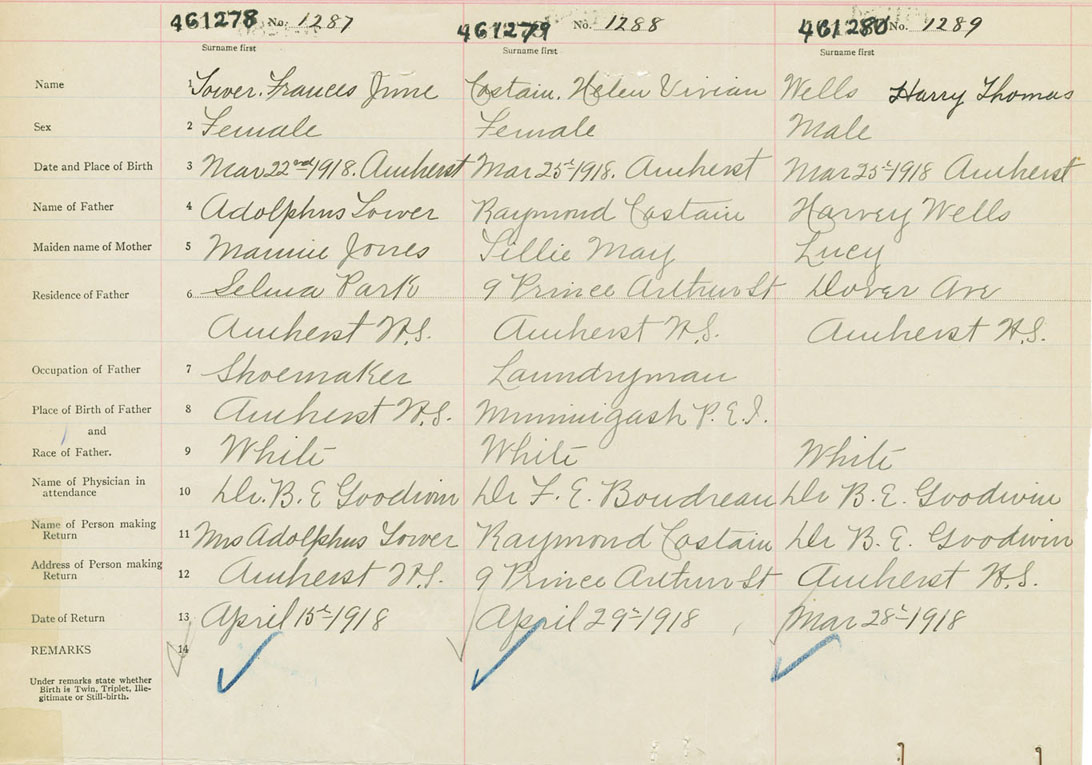 461278 No. 1287 461279 No. 1288 461280 No. 1289
Surname first Surname first Surname first
Name 1 Tower. Frances June Costain. Helen Vivian Wells Harry Thomas
Sex 2 Female Female Male
Date and Place of Birth 3 Mar 22nd 1918. Amherst Mar 25t 1918. Amherst Mar 25t 1918 Amherst
Name of Father 4 Adolphus Tower Raymond Costain Harvey Wells
Maiden name of Mother 5 Mamie Jones Lillie May Lucy
Residence of Father 6 Selma Park 9 Prince Arthur St Dover Ave
Amherst N.S. Amherst N.S. Amherst N.S.
Occupation of Father 7 Shoemaker Laundryman
Place of Birth of Father 8 Amherst N.S. Mimmigash P.E.I.
and
Race of Father. 9 White White White
Name of Physician in
attendance 10 Dr. B. E Goodwin Dr F. E. Boudreau Dr B. E. Goodwin
Name of Person making
Return 11 Mrs Adolphus Tower Raymond Costain Dr B. E. Goodwin
Address of Person making
Return 12 Amherst N.S. 9 Prince Arthur St Amherst N.S.
Date of Return 13 April 15t 1918 April 29t 1918 Mar 28t 1918
REMARKS 14
Under remarks state whether
Birth is Twin, Triplet, Ille-
gitimate or Still-birth.